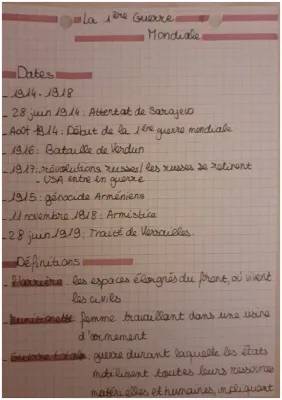 La 1ère Guerre
Mondiale
Dates
- 1914-1918
- 28 juin 1914: Attentat de Sarajevo
Août 1914: Début de la 1ère guerre mondiale
- 1916: Bataille de Verdun
- 1917: révolutions russes/ les russes se retirent
- USA entre en guerre
- 1915: génocide Arméniens
- 11 novembre 1918: Armistice
- 28 juin 1919: Traité de Versailles.
Définitions
- L'arrière: les espaces éloignés du front, où vivent
les civils
- Munitionnette: femme travaillant dans une usine
d'armement
- Guerre totale: guerre durant laquelle les États
mobilisent toutes leurs ressources
matérielles et humaines, impliquant